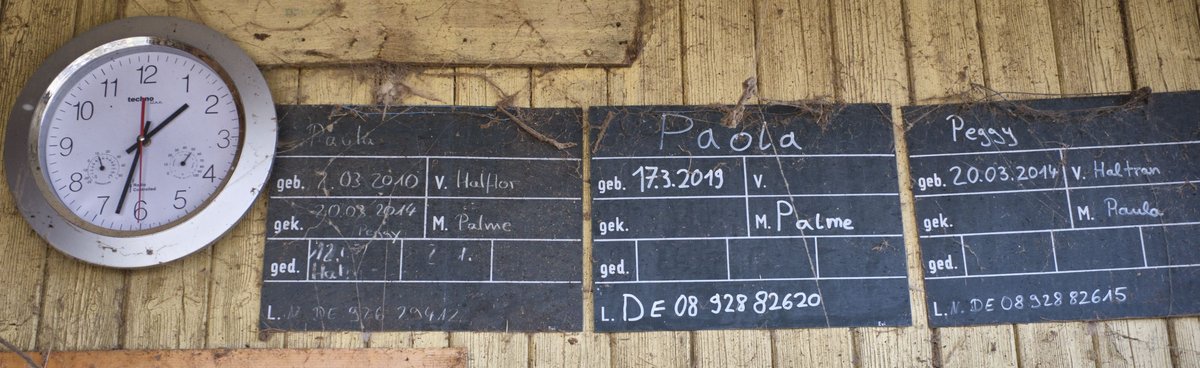 12
1
2
3
4
5
6
7
8
9
10
11
techno
Radio
Controlled
Paula
geb. 2.03.2010 V. Halflor
gek. 20.03.2014 M. Palme
Peggy
ged. 12.
Hal.
L. N. DE 926 29412
Paola
geb. 17.3.2019 V.
gek. M. Palme
ged.
L. DE 08 928 82620
Peggy
geb. 20.03.2014 V. Haltran
gek. M. Paula
ged.
L. N. DE 08 928 82615